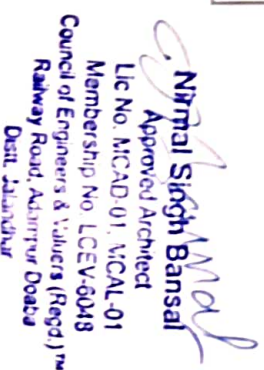 Nirmal Singh Bansal
Approved Architect
Lic No. MCAD-01, MCAL-01
Membership No. LCEV-6048
Council of Engineers & Valuers (Regd.)™
Railway Road, Adampur Doaba
Distt. Jalandhar